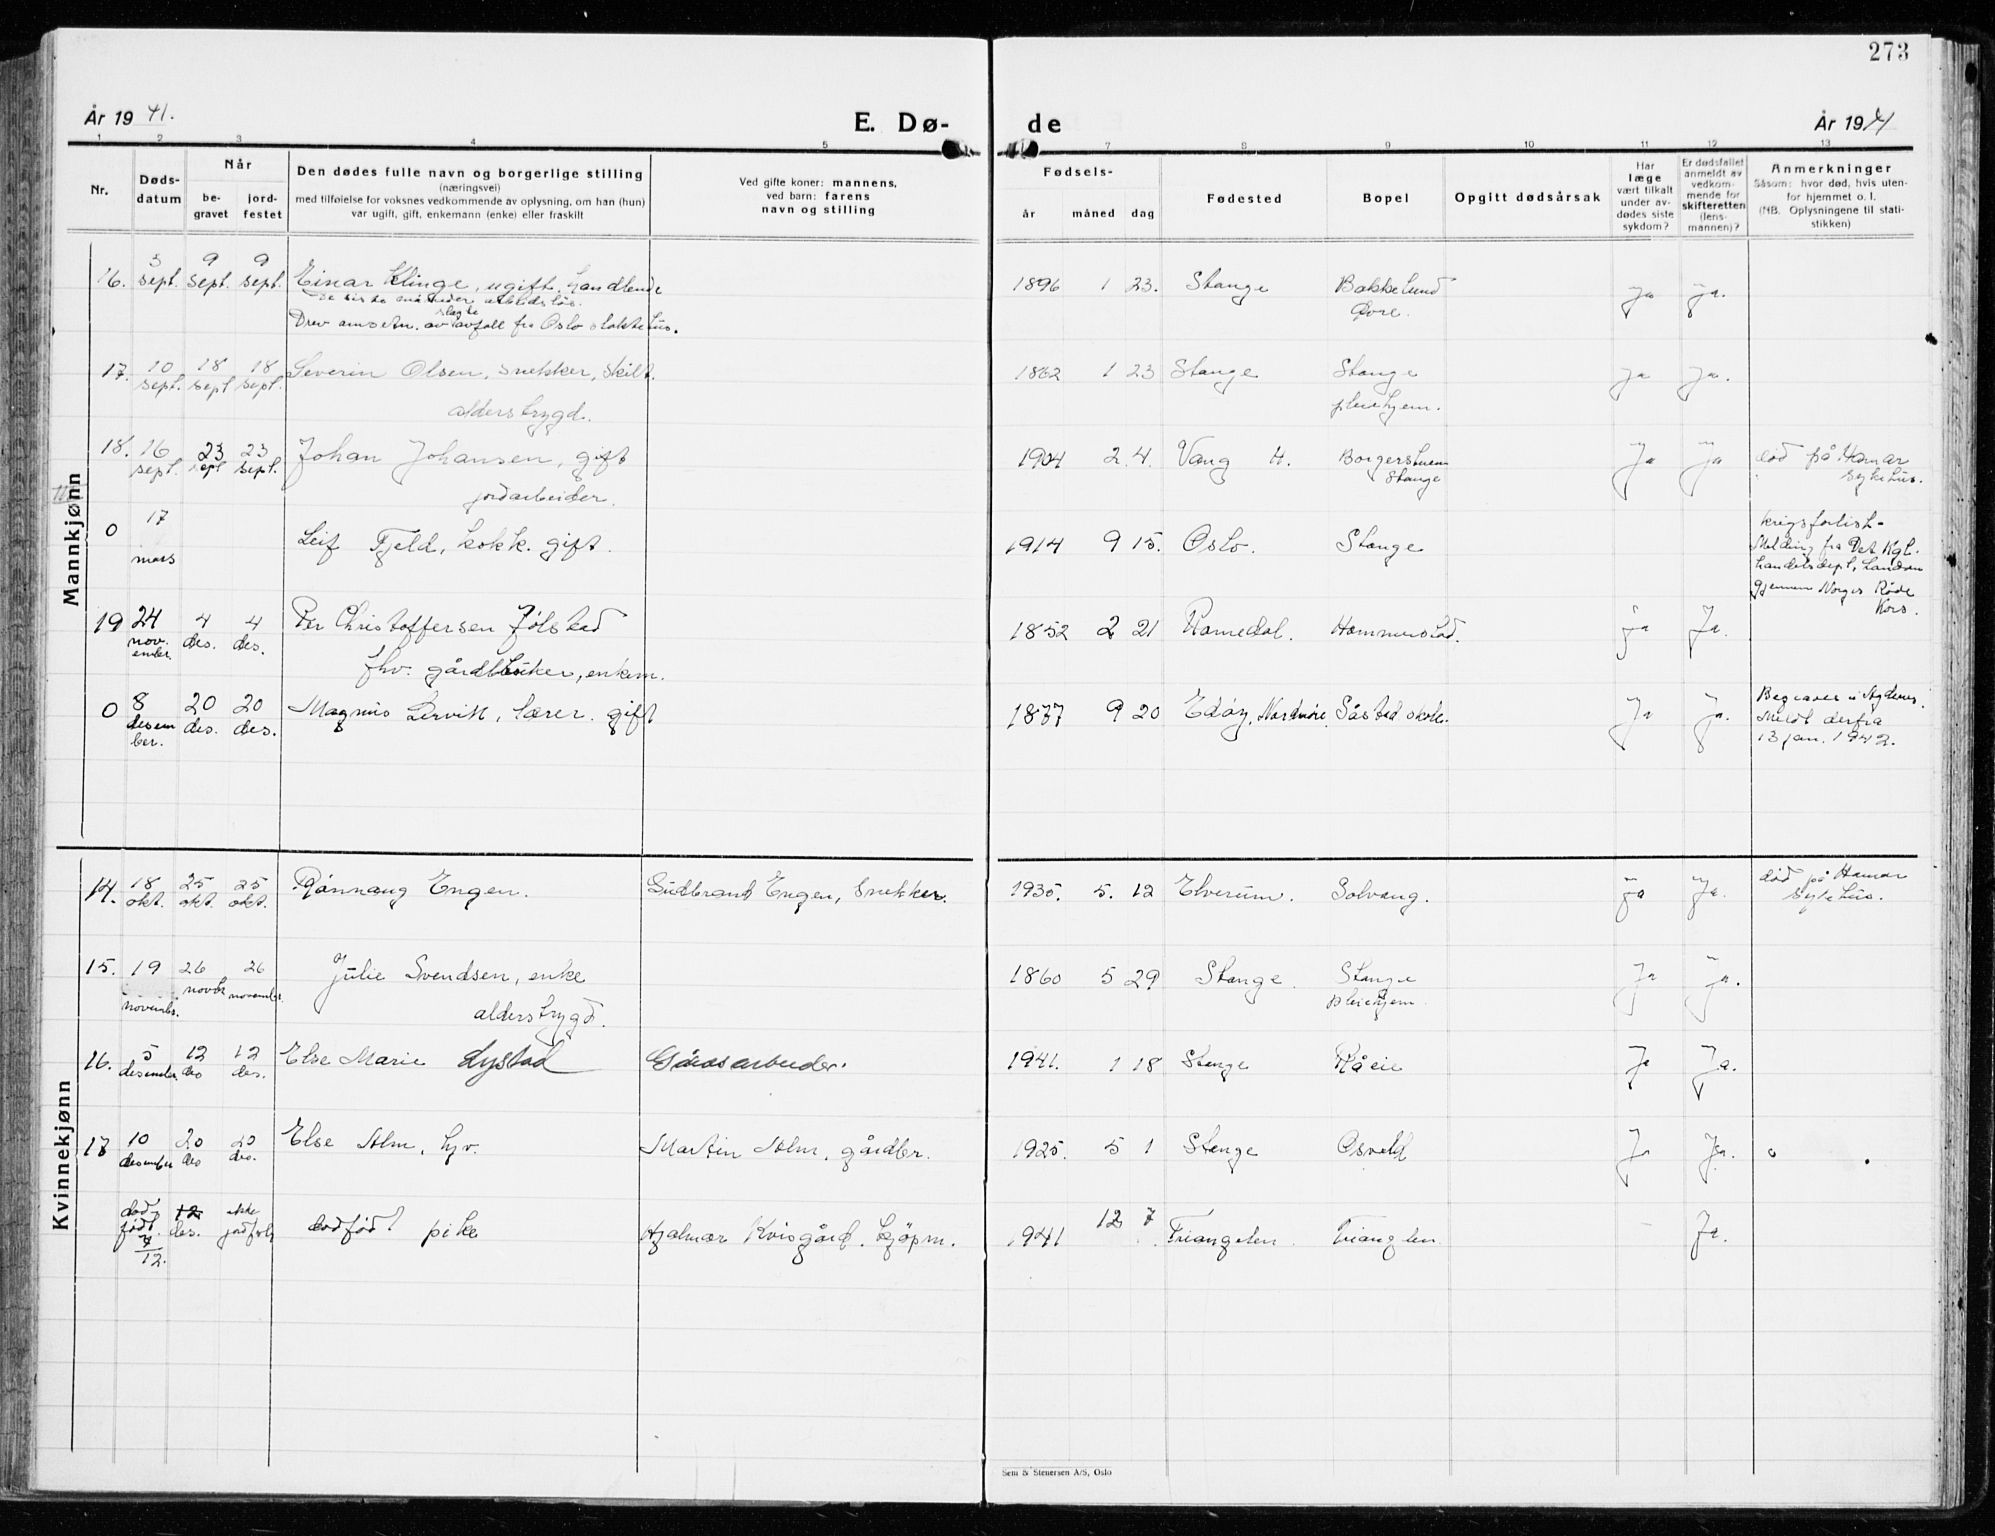 273
År 1941.
E. Dø-
de
År 1941
1 2 3 4 5 7 8 9 10 11 12 13
Nr.
Døds-
datum
Når
be-
gravet
jord-
festet
Den dødes fulle navn og borgerlige stilling
(næringsvei)
med tilføielse for voksnes vedkommende av oplysning, om han (hun)
var ugift, gift, enkemann (enke) eller fraskilt
Ved gifte koner: mannens,
ved barn: farens
navn og stilling
Fødsels-
år måned dag
Fødested
Bopel
Opgitt dødsårsak
Har
læge
vært tilkalt
under av-
dødes siste
sykdom?
Er dødsfallet
anmeldt av
vedkom-
mende for
skifteretten
(lens-
mannen)?
Anmerkninger
Såsom: hvor død, hvis uten-
for hjemmet o. l.
(NB. Oplysningene til stati-
stikken)
Mannkjønn
16. 3 sept. 9 sept. 9 sept. Einar Klinge, ugift, 1896 1 23. Stange Bakkelund Ja Ja.
De siste måneder arbeidsløs. Øvre.
slagte
Drev omsetn. av avfall fra Oslo slaktehus.
17. 10 sept. 18 sept 18 sept. Severin Olsen, snekker, skilt. 1862 1 23 Stange Stange Ja Ja.
alderstrygd. pleiehjem.
18. 16 sept. 23 sept 23 sept. Johan Johansen, gift 1904 2. 4. Vang H. Ja Ja død på Hamar
jordarbeider. Stange sykehus.
0 17 mars Leif Fjeld, kokk. gift. 1914 9 15. Oslo. Stange krigsforlist-
Melding fra Det Kgl.
handelsdept, London
gjennem Norges Røde
Kors.
19 24 november. 4 des. 4 des. Per Christoffersen Jølstad 1852 2 21 Romedal. Hommerstad. Ja Ja.
fhv. gårdbruker, enkem.
0 8 desember. 20 des. 20 des. Magnus Lervik, lærer. gift 1877 9 20 Edøy, Nordmøre. Såstad skole. Ja Ja. Begraves i Agdenes.
Meldt derfra
13 jan. 1942.
Kvinnekjønn
14. 18 okt. 25 okt. 25 okt. Rønnaug Engen. Gudbrand Engen, snekker. 1935. 5. 12 Elverum. Solvang. Ja Ja. død på Hamar
sykehus.
15. 19 november. 26 novbr 26 november. Julie Svendsen, enke 1860 5 29 Stange. Stange Ja Ja.
alderstrygd. pleiehjem
16. 5 desember. 12 des 12 des. Else Marie Lystad Gårdsarbeider. 1941. 1 18 Stange Råeie Ja Ja.
17 10 desember 20 des 20 des. Else Alm, hjv. Martin Alm, gårdbr. 1925. 5 1 Stange Osvold Ja Ja.
død-
født
7/12. 12 des. ikke
jordf. dødfødt pike Hjalmar Kvisgård. kjøpm. 1941 12 7 Triangelen. Trianglen. Ja.
Sem & Stenersen A/S, Oslo